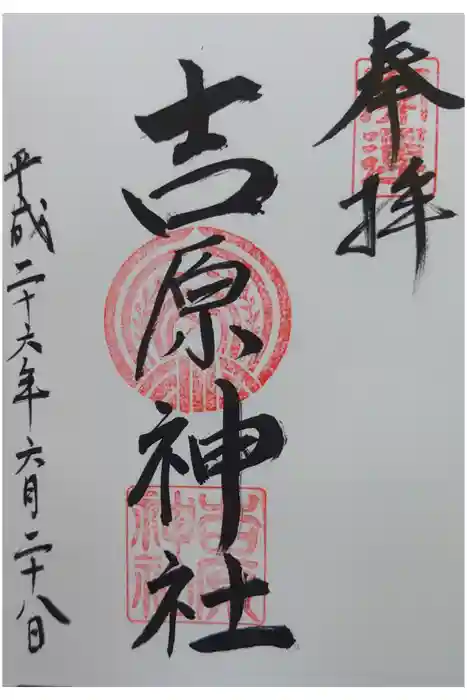 奉拝
吉原神社
吉原神社
平成二十六年六月二十八日